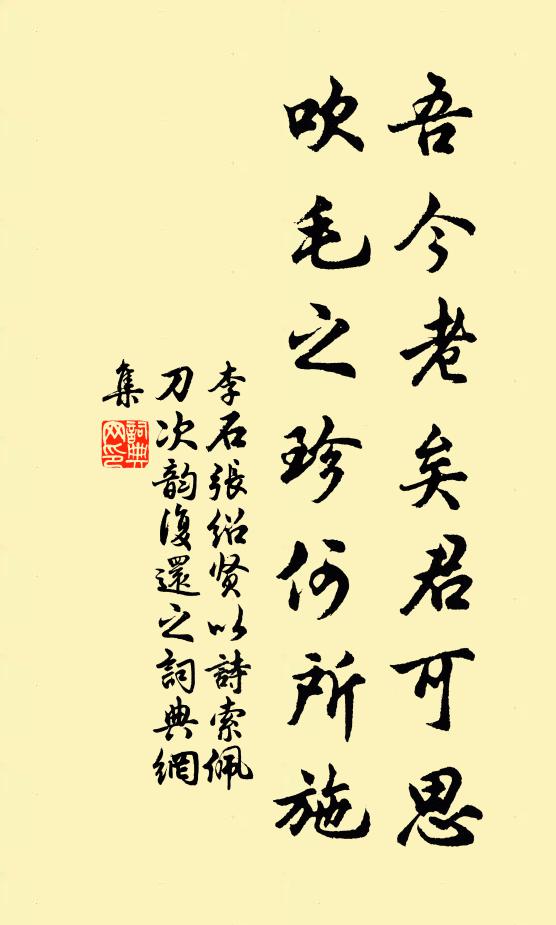 吾今老矣君可思
吹毛之珍何所施
李石張紹贤以詩索佩
刀次韵復還之詞典網
集
詞典
网印